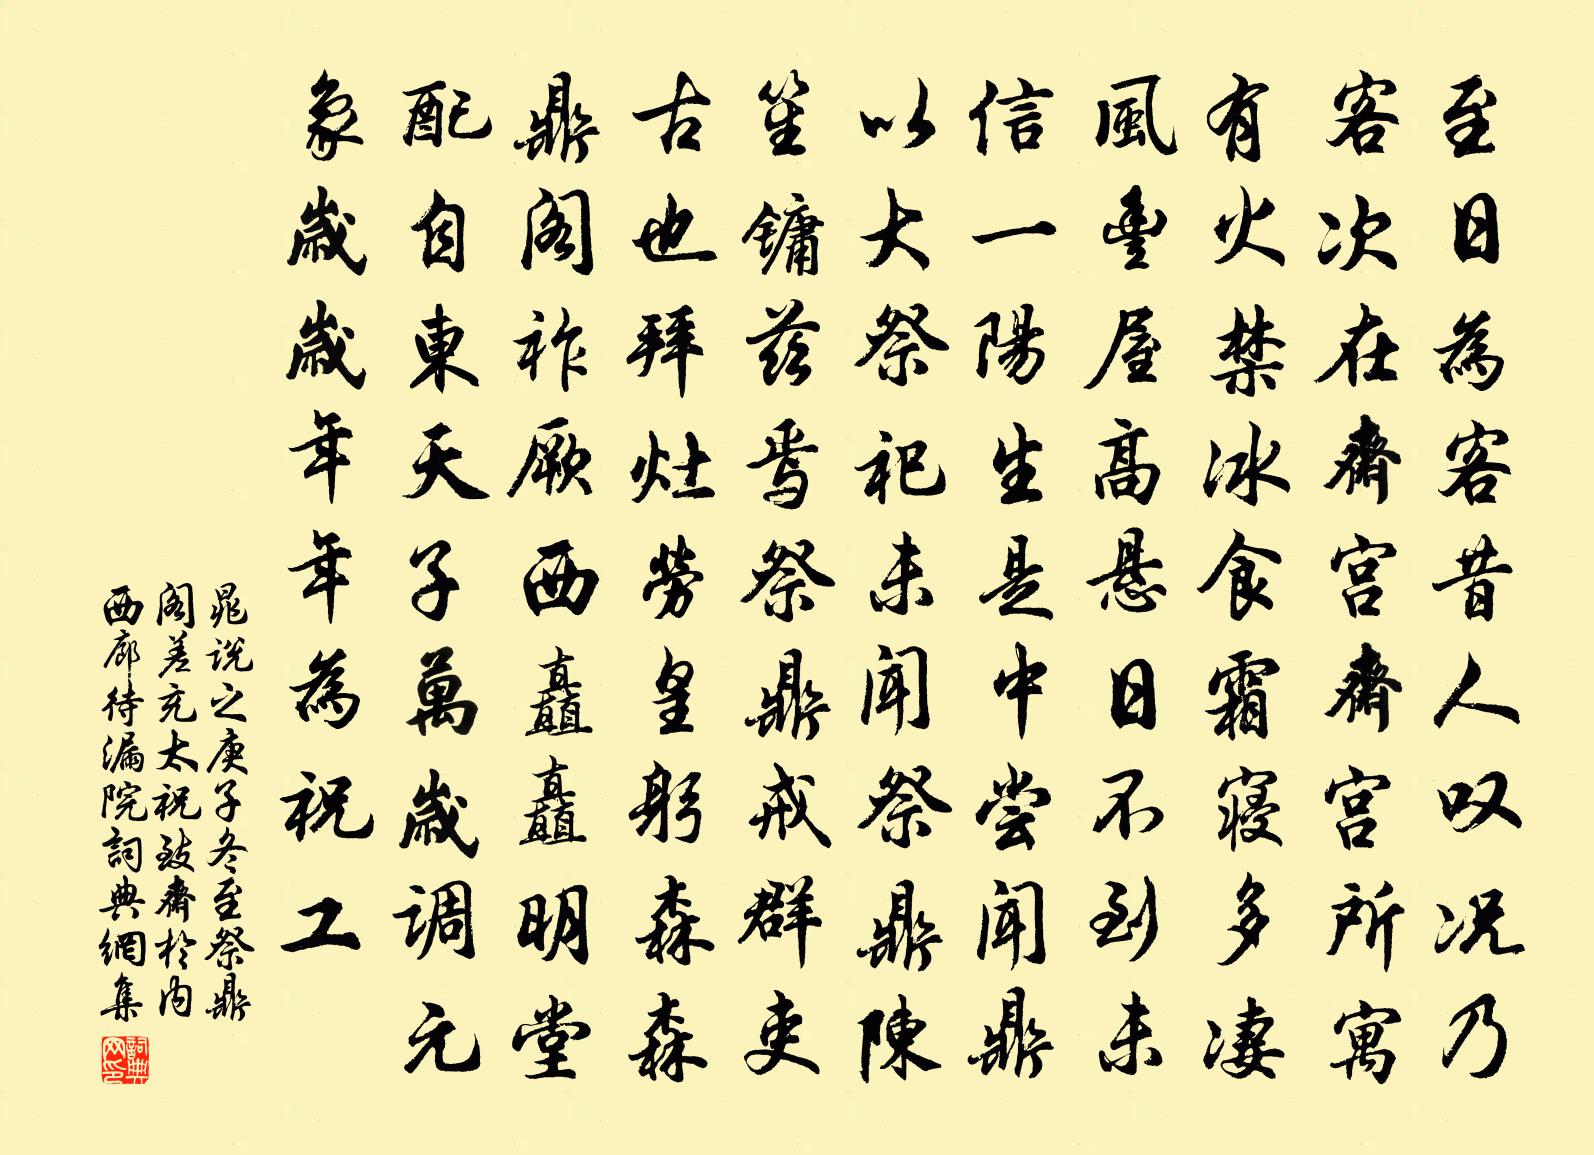 至日為客昔人叹况乃
客次在齋宫齋宫所寓
有火禁冰食霜寝多凄
風豊屋高悬日不到未
信一陽生是中尝闻鼎
以大祭祀未闻祭鼎陳
笙镛兹焉祭鼎戒群吏
古也拜灶劳皇躬森森
鼎阁祚厥西矗矗明堂
配自東天子萬歲调元
象歲歲年年為祝工
晁说之庚子冬至祭鼎
阁差充太祝致齋於内
西廊待漏院詞典網集
詞典网印